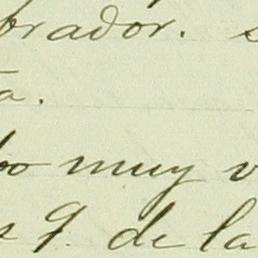 brador. s
a.
bo muy v
s 9. de la